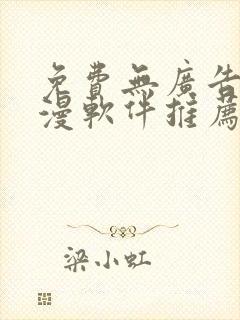 免費無廣告
漫軟件推薦
梁小虹